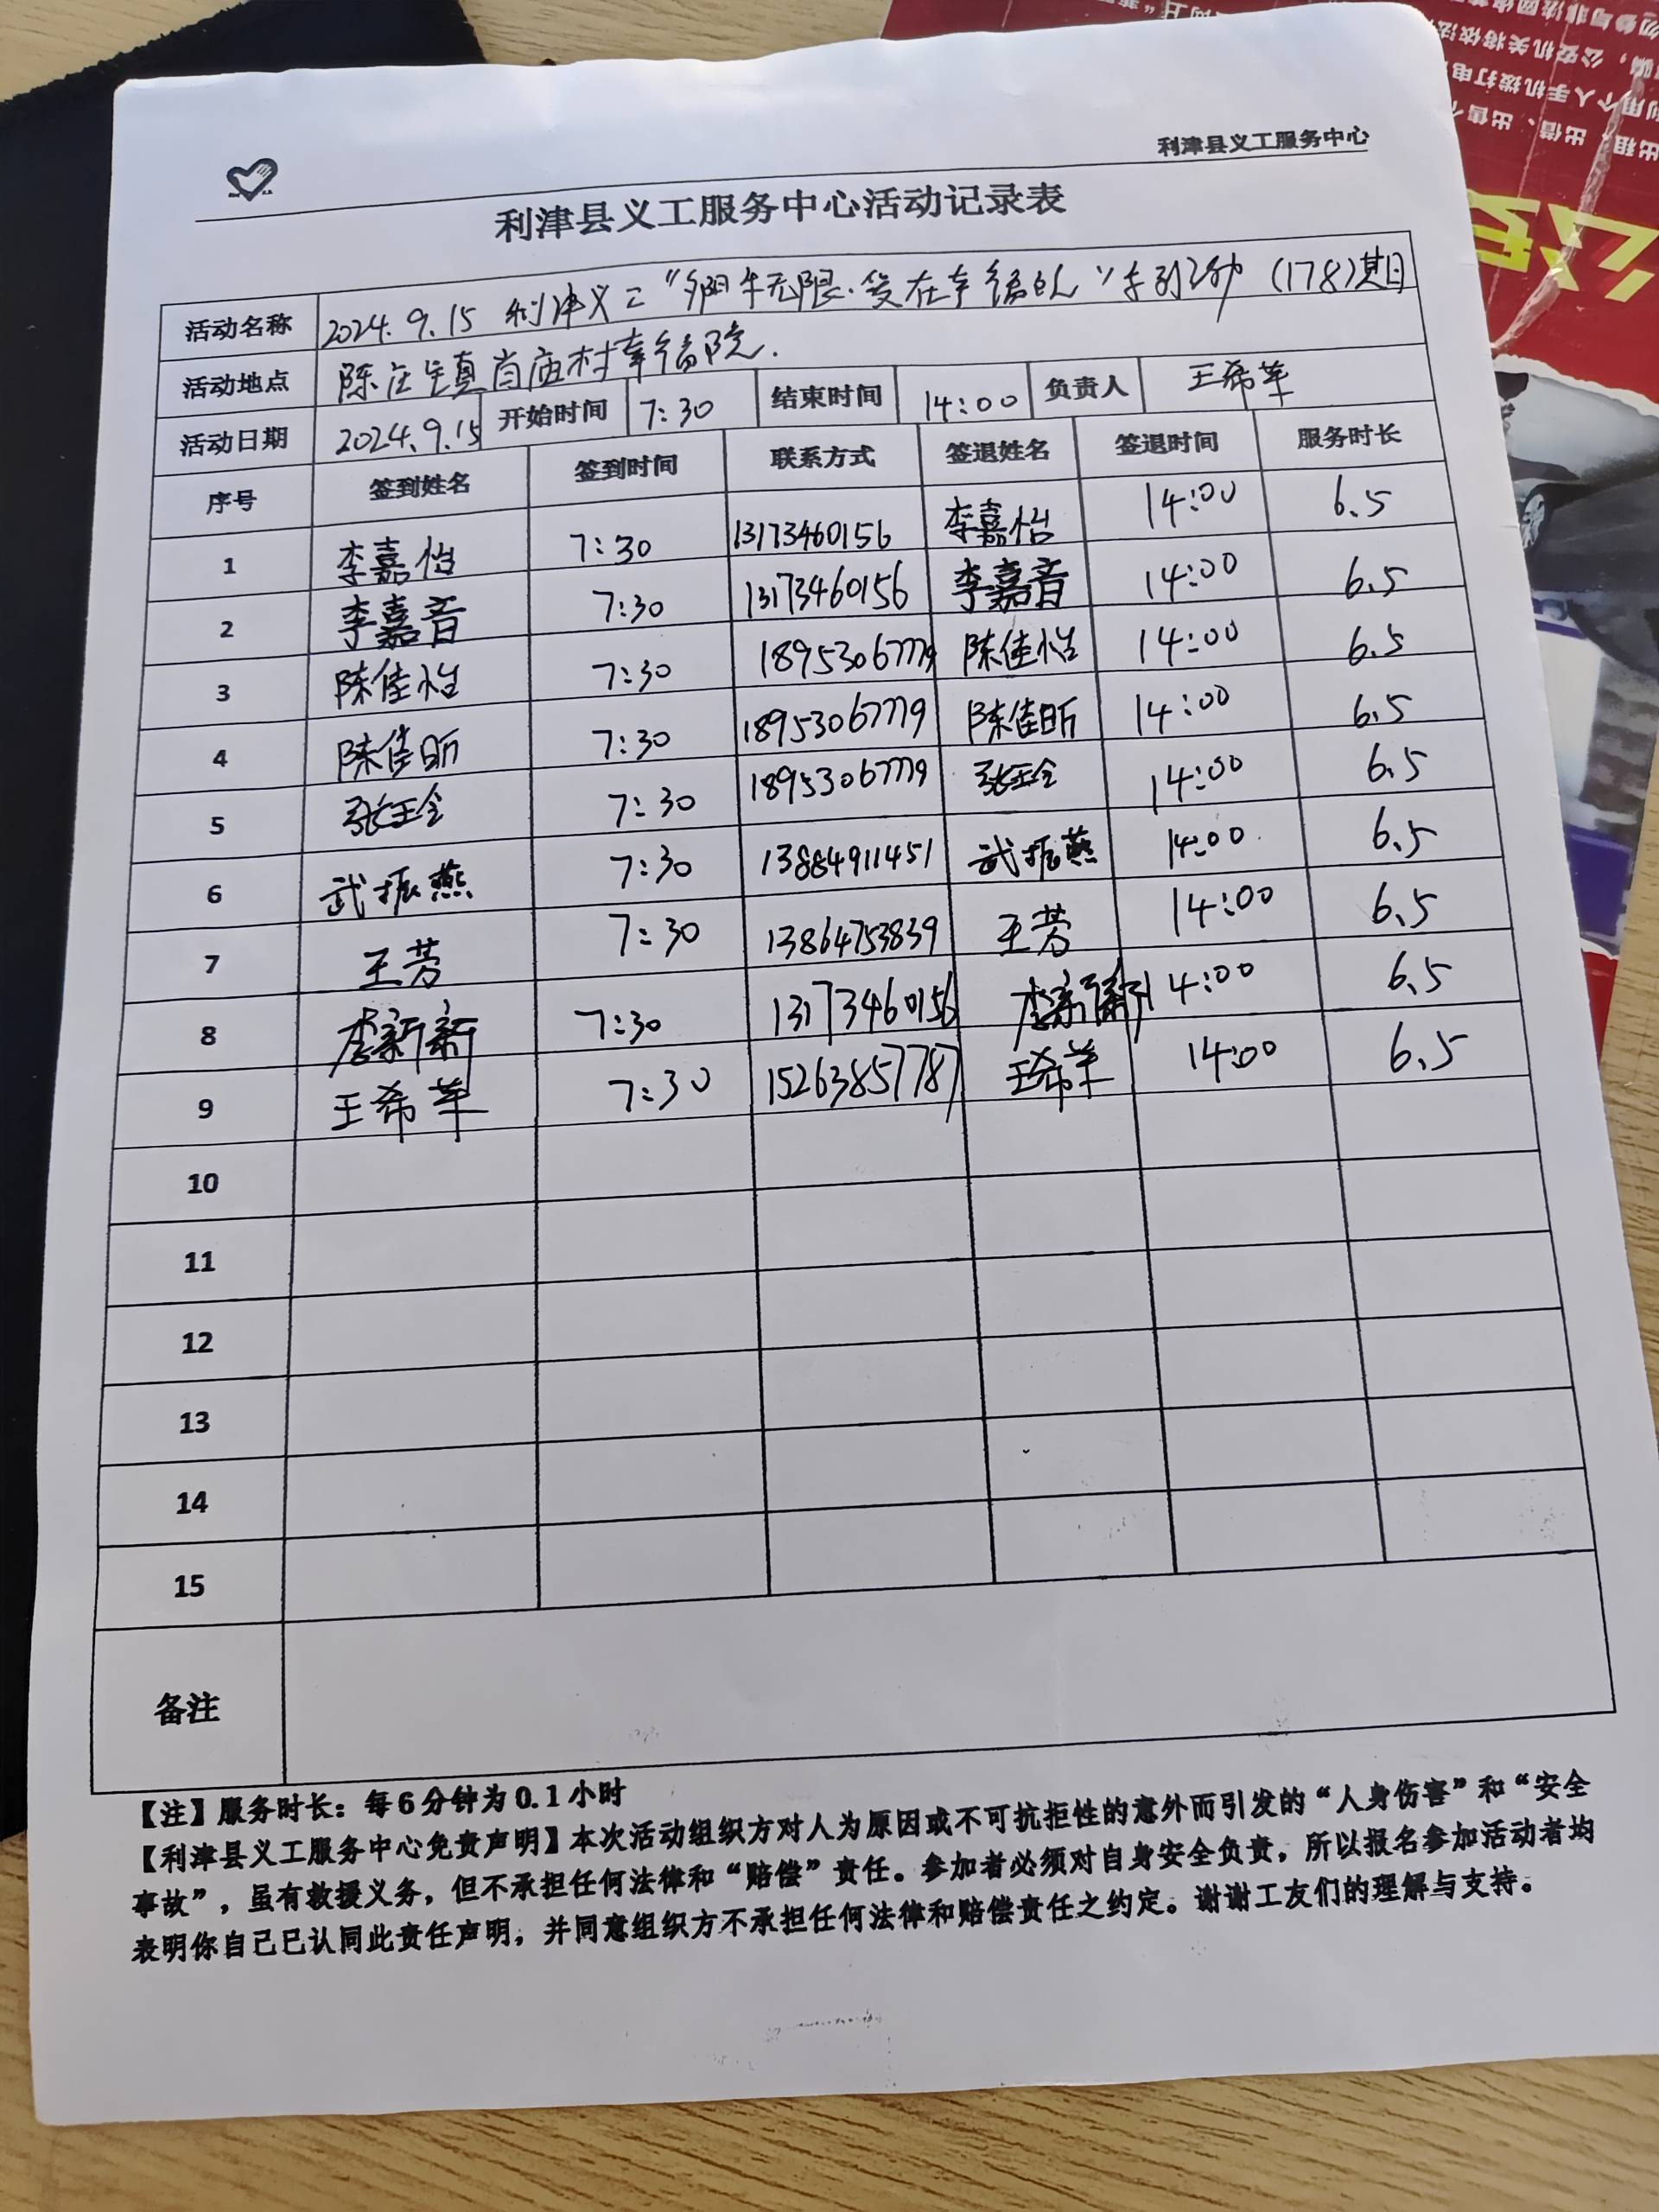 利津县义工服务中心
利津县义工服务中心活动记录表
活动名称 2024.9.15 利津义工“夕阳无限·爱在幸福院”系列活动 (178)期
活动地点 陈庄镇 庙村幸福院.
活动日期 2024.9.15 开始时间 7:30 结束时间 14:00 负责人 王希苹
序号 签到姓名 签到时间 联系方式 签退姓名 签退时间 服务时长
1 李嘉怡 7:30 13173460156 李嘉怡 14:00 6.5
2 李嘉音 7:30 13173460156 李嘉音 14:00 6.5
3 陈佳怡 7:30 18953067779 陈佳怡 14:00 6.5
4 陈佳昕 7:30 18953067779 陈佳昕 14:00 6.5
5 张玉玲 7:30 18953067779 张玉玲 14:00 6.5
6 武振燕 7:30 13884911451 武振燕 14:00 6.5
7 王芳 7:30 13864753839 王芳 14:00 6.5
8 李新新 7:30 13173460156 李新新 14:00 6.5
9 王希苹 7:30 15263857787 王希苹 14:00 6.5
10
11
12
13
14
15
备注
【注】服务时长：每6分钟为0.1小时
【利津县义工服务中心免责声明】本次活动组织方对人为原因或不可抗拒性的意外而引发的“人身伤害”和“安全
事故”，虽有救援义务，但不承担任何法律和“赔偿”责任。参加者必须对自身安全负责，所以报名参加活动者均
表明你自己已认同此责任声明，并同意组织方不承担任何法律和赔偿责任之约定。谢谢工友们的理解与支持。